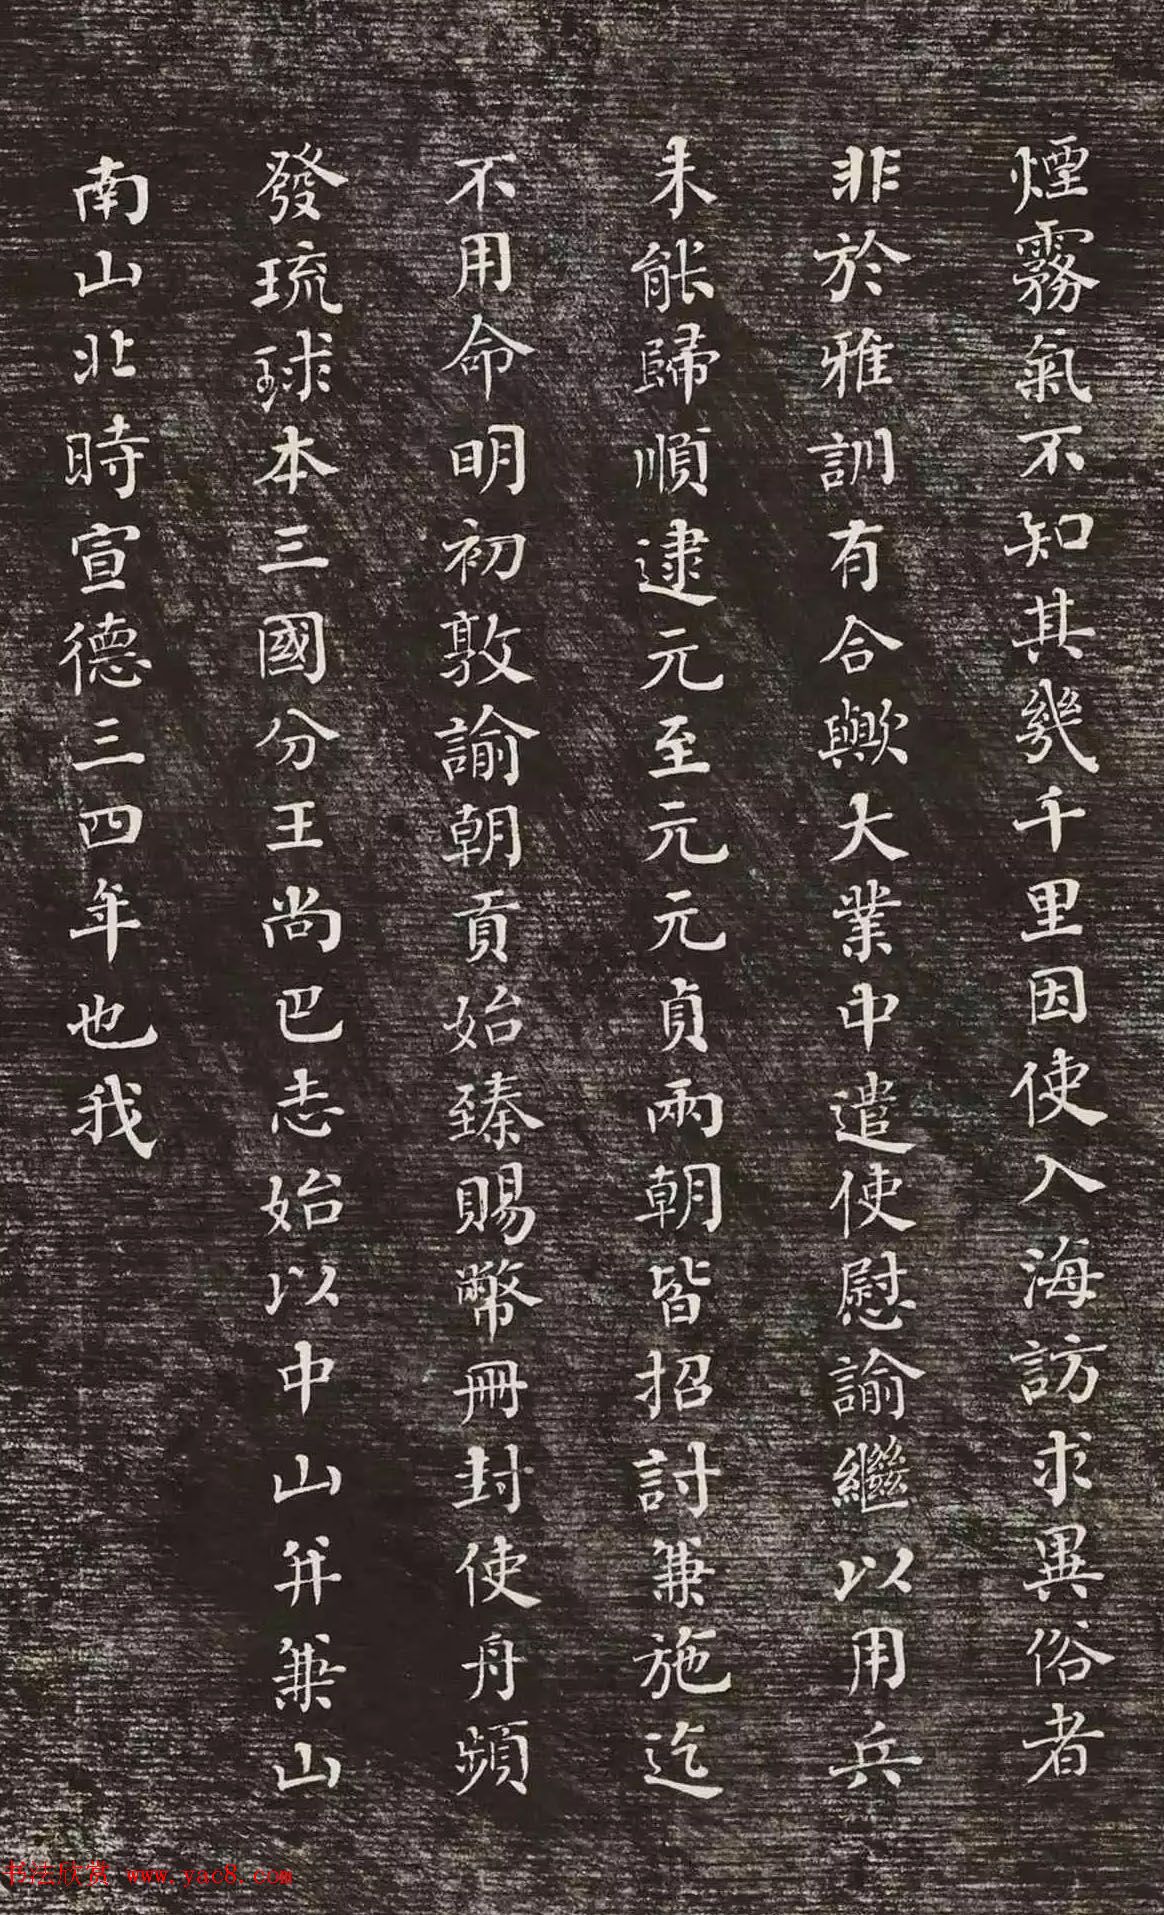 煙霧氣不知其幾千里因使入海訪求異俗者
非於雅訓有合歟大業中遣使慰諭繼以用兵
未能歸順逮元至元元貞兩朝皆招討兼施迄
不用命明初敦諭朝貢始臻賜幣冊封使舟頻
發琉球本三國分王尚巴志始以中山并兼山
南山北時宣德三四年也我
书法欣赏 www.yac8.com